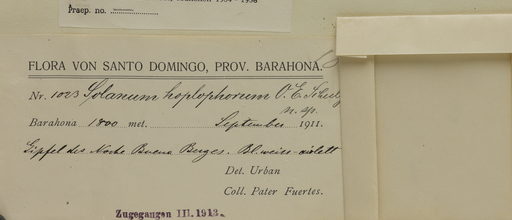 Praep. no.
FLORA VON SANTO DOMINGO, PROV. BARAHONA.
Nr. 1023 Solanum hoplophorum O. E. Schulz
n. sp.
Barahona 1800 met. September 1911.
Gipfel des Noche Buena Berges. Bl. weiss-violett
Det. Urban
Coll. Pater Fuertes.
Zugegangen III. 1913.